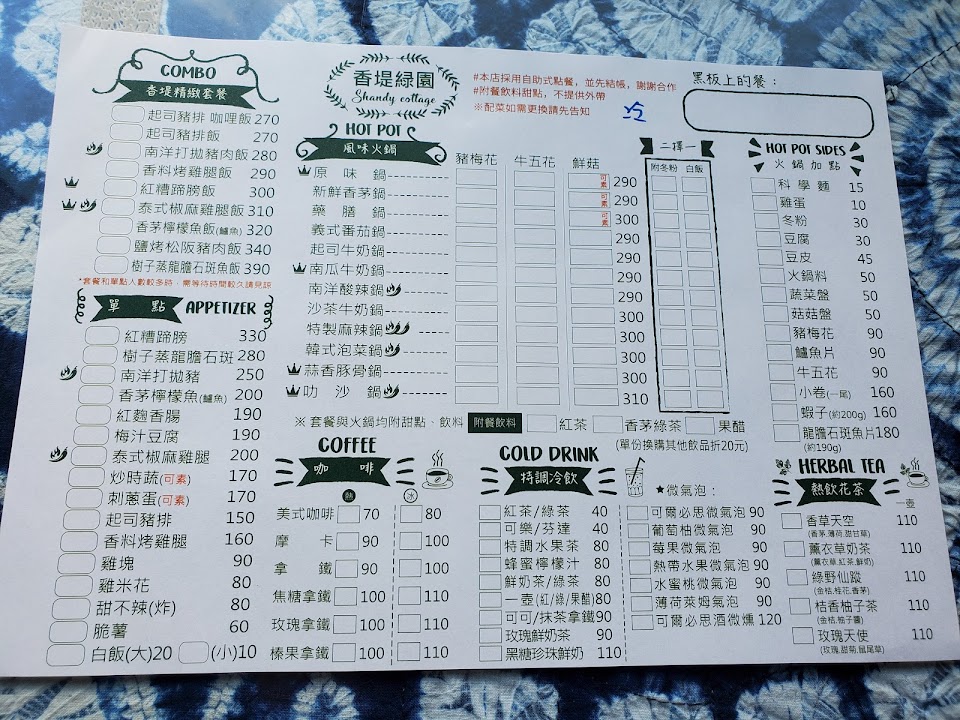 COMBO
香堤精緻套餐
起司豬排 咖哩飯 270
起司豬排飯 270
南洋打拋豬肉飯 280
香料烤雞腿飯 290
紅糟蹄膀飯 300
泰式椒麻雞腿飯 310
香茅檸檬魚飯(鱸魚) 320
鹽烤松阪豬肉飯 340
樹子蒸龍膽石斑魚飯 390
*套餐和單點人數較多時，需等待時間較久請見諒
單 點 APPETIZER
紅糟蹄膀 330
樹子蒸龍膽石斑 280
南洋打拋豬 250
香茅檸檬魚(鱸魚) 200
紅麴香腸 190
梅汁豆腐 190
泰式椒麻雞腿 200
炒時蔬(可素) 170
刺蔥蛋(可素) 170
起司豬排 150
香料烤雞腿 160
雞塊 90
雞米花 80
甜不辣(炸) 80
脆薯 60
白飯(大)20 (小)10
香堤綠園
Shandy cottage
#本店採用自助式點餐，並先結帳，謝謝合作
#附餐飲料甜點，不提供外帶
※配菜如需更換請先告知
黑板上的餐：
HOT POT
風味火鍋
豬梅花 牛五花 鮮菇
二擇一
附冬粉 白飯
原 味 鍋 可素 290
新鮮香茅鍋 可素 290
藥 膳 鍋 可素 300
義式番茄鍋 290
起司牛奶鍋 290
南瓜牛奶鍋 290
南洋酸辣鍋 290
沙茶牛奶鍋 300
特製麻辣鍋 300
韓式泡菜鍋 300
蒜香豚骨鍋 300
叻 沙 鍋 310
※ 套餐與火鍋均附甜點、飲料 附餐飲料 紅茶 香茅綠茶 果醋
(單份換購其他飲品折20元)
HOT POT SIDES
火鍋加點
科學麵 15
雞蛋 10
冬粉 30
豆腐 30
豆皮 45
火鍋料 50
蔬菜盤 50
菇菇盤 50
豬梅花 90
鱸魚片 90
牛五花 90
小卷(一尾) 160
蝦子(約200g) 160
龍膽石斑魚片 180
(約190g)
COFFEE
咖 啡
熱 冰
美式咖啡 70 80
摩 卡 90 100
拿 鐵 90 100
焦糖拿鐵 100 110
玫瑰拿鐵 100 110
榛果拿鐵 100 110
COLD DRINK
特調冷飲
紅茶/綠茶 40
可樂/芬達 40
特調水果茶 80
蜂蜜檸檬汁 80
鮮奶茶/綠茶 80
一壺(紅/綠/果醋) 80
可可/抹茶拿鐵 90
玫瑰鮮奶茶 90
黑糖珍珠鮮奶 110
★微氣泡：
可爾必思微氣泡 90
葡萄柚微氣泡 90
莓果微氣泡 90
熱帶水果微氣泡 90
水蜜桃微氣泡 90
薄荷萊姆氣泡 90
可爾必思酒微燻 120
HERBAL TEA
熱飲花茶
一壺
香草天空 110
(香茅,薄荷,甜甘草)
薰衣草奶茶 110
(薰衣草,紅茶,鮮奶)
綠野仙蹤 110
(金桔,桂花,香茅)
桔香柚子茶 110
(金桔,柚子醬)
玫瑰天使 110
(玫瑰,甜菊,鼠尾草)